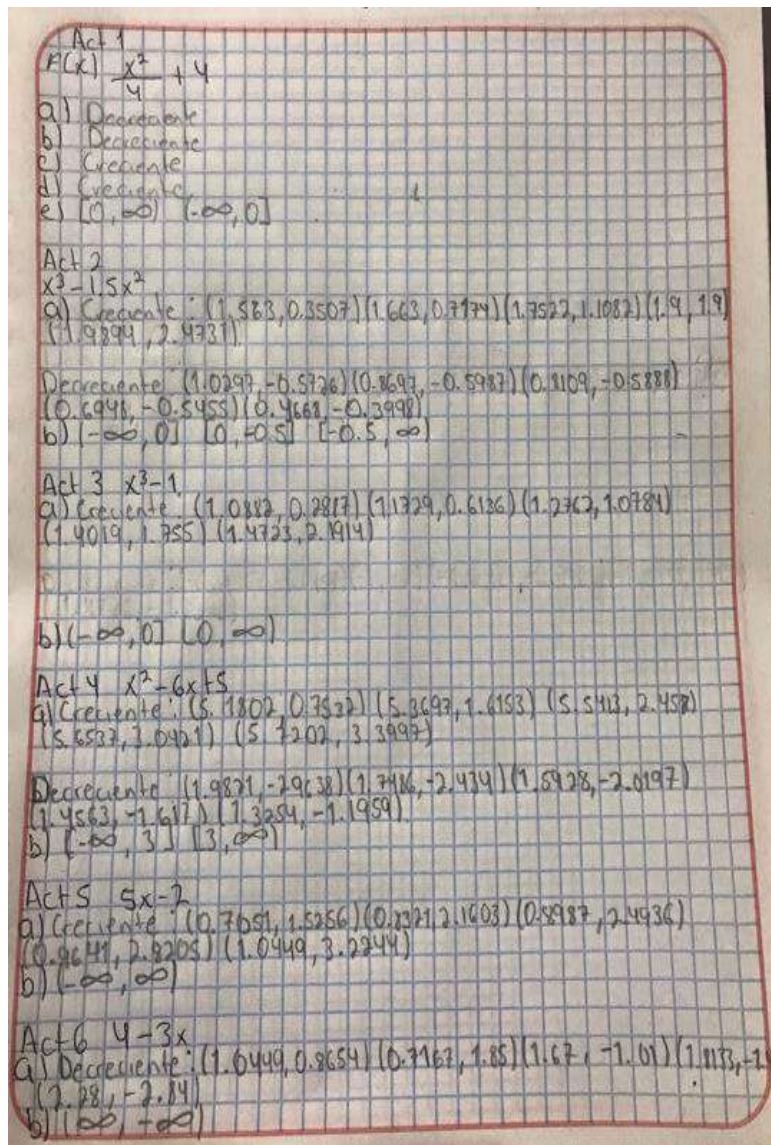 Act 1
F(x) x²/4 + 4
a) Decreciente
b) Decreciente
c) Creciente
d) Creciente
e) [0, ∞) (-∞, 0]
Act 2
x³-1.5x²
a) Creciente: (1.563, 0.3507) (1.663, 0.7174) (1.7522, 1.1082) (1.9, 1.9)
(1.9894, 2.4731)
Decreciente: (1.0297, -0.5726) (0.8697, -0.5987) (0.8109, -0.5888)
(0.6948, -0.5455) (0.4668, -0.3998)
b) (-∞, 0] [0, -0.5] [-0.5, ∞)
Act 3 x³-1
a) Creciente: (1.0882, 0.2817) (1.1729, 0.6136) (1.2762, 1.0784)
(1.4019, 1.755) (1.4723, 2.1914)
b) (-∞, 0] [0, ∞)
Act 4 x²-6x+5
a) Creciente: (5.1802, 0.7532) (5.3697, 1.6153) (5.5413, 2.458)
(5.6537, 3.0421) (5.7202, 3.3997)
Decreciente: (1.9821, -2.9638) (1.7486, -2.434) (1.5928, -2.0197)
(1.4563, -1.617) (1.3254, -1.1959)
b) (-∞, 3] [3, ∞)
Act 5 5x-2
a) Creciente: (0.7051, 1.5256) (0.8321, 2.1603) (0.8987, 2.4936)
(0.9641, 2.8205) (1.0449, 3.2244)
b) (-∞, ∞)
Act 6 4-3x
a) Decreciente: (1.0449, 0.8654) (0.7167, 1.85) (1.67, -1.01) (1.8133, -1.
(2.28, -2.84)
b) (∞, -∞)